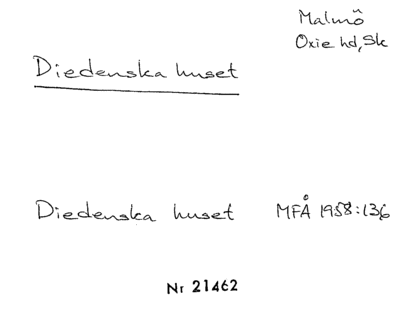 Malmö
Oxie hd, Sk
Diedenska huset
Diedenska huset MFÅ 1958:136
Nr 21462